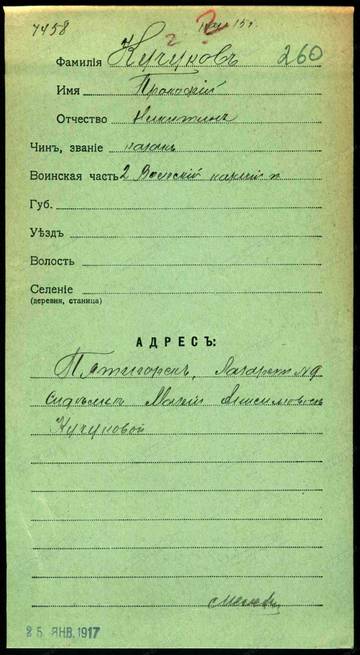 7458
2 ?
Фамилія Кучуновъ 260
Имя Прокофій
Отчество Никитинъ
Чинъ, званіе казакъ
Воинская часть 2 Волгскій казачій п
Губ.
Уѣздъ
Волость
Селеніе
(деревня, станица)
АДРЕСЪ:
Пятигорскъ, Лазаретъ №9
Марій Анисимовнѣ
Кучуновой
25 ЯНВ. 1917